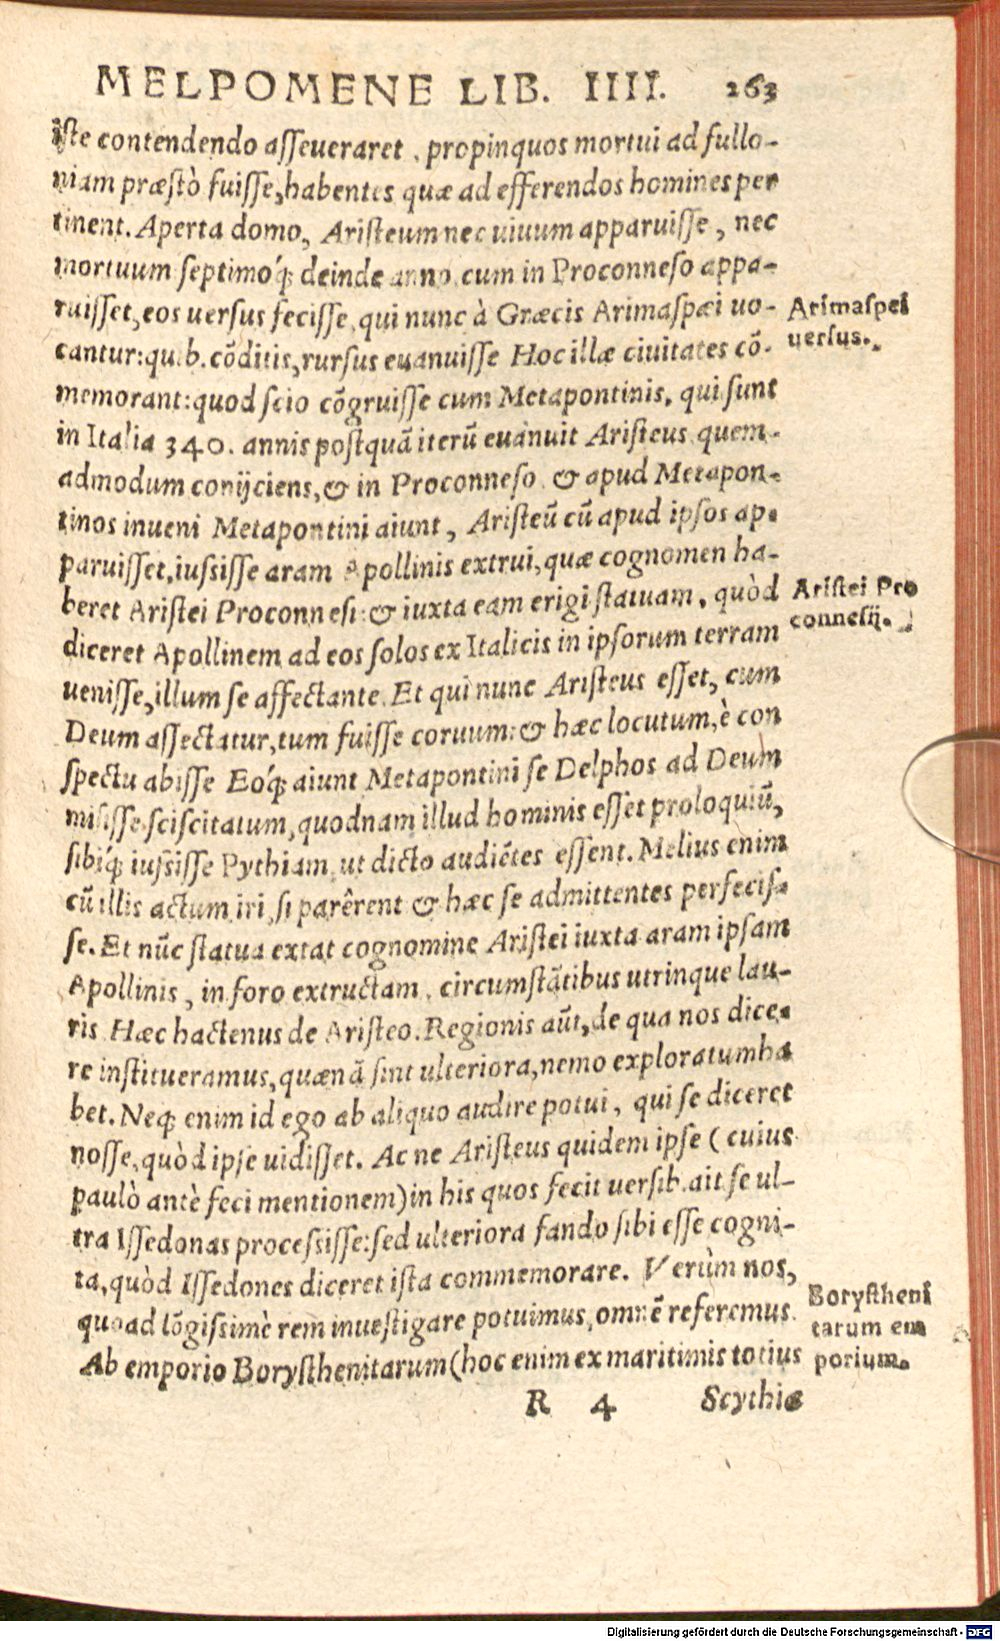 MELPOMENE LIB. IIII. 263
iſte contendendo aſſeueraret, propinquos mortui ad fullo-
niam præſtò fuiſſe, habentes quæ ad efferendos homines per
tinent. Aperta domo, Ariſteum nec uiuum apparuiſſe, nec
mortuum ſeptimoq́; deinde anno cum in Proconneſo appa-
ruiſſet, eos uerſus feciſſe, qui nunc à Græcis Arimaſpæi uo-
cantur: quib. cōditis, rurſus euanuiſſe Hoc illæ ciuitates cō-
memorant: quod ſcio cōgruiſſe cum Metapontinis, qui ſunt
in Italia 340. annis poſtquā iterū euanuit Ariſteus quem-
admodum conijciens, & in Proconneſo & apud Metapon-
tinos inueni Metapontini aiunt, Ariſteū cū apud ipſos ap-
paruiſſet, iuſsiſſe aram Apollinis extrui, quæ cognomen ha-
beret Ariſtei Proconneſi: & iuxta eam erigi ſtatuam, quòd
diceret Apollinem ad eos ſolos ex Italicis in ipſorum terram
ueniſſe, illum ſe affectante. Et qui nunc Ariſteus eſſet, cum
Deum aſſectatur, tum fuiſſe coruum: & hæc locutum, è con
ſpectu abiſſe Eoq́; aiunt Metapontini ſe Delphos ad Deum
miſiſſe ſciſcitatum, quodnam illud hominis eſſet proloquiū,
ſibiq́; iuſsiſſe Pythiam, ut dicto audiētes eſſent. Melius enim
cū illis actum iri, ſi parêrent & hæc ſe admittentes perfeciſ-
ſe. Et nūc ſtatua extat cognomine Ariſtei iuxta aram ipſam
Apollinis, in foro extructam, circumſtātibus utrinque lau-
ris Hæc hactenus de Ariſteo. Regionis aūt, de qua nos dice-
re inſtitueramus, quænā ſint ulteriora, nemo exploratum ha
bet. Neq; enim id ego ab aliquo audire potui, qui ſe diceret
noſſe, quòd ipſe uidiſſet. Ac ne Ariſteus quidem ipſe (cuius
paulò antè feci mentionem) in his quos fecit uerſib. ait ſe ul-
tra Iſſedonas proceſsiſſe: ſed ulteriora fando ſibi eſſe cogni-
ta, quòd Iſſedones diceret iſta commemorare. Verùm nos,
quoad lōgiſsimè rem inueſtigare potuimus, omnē referemus.
Ab emporio Boryſthenitarum (hoc enim ex maritimis totius
R 4 Scythiæ
Arimaſpei
uerſus.
Ariſtei Pro
conneſij.
Boryſtheni
tarum em
porium.
Digitalisierung gefördert durch die Deutsche Forschungsgemeinschaft - DFG